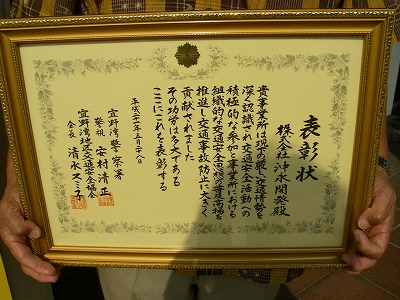 表彰状
株式会社 沖水開発殿
貴事業所は現下の厳しい交通情勢を
深く認識され交通安全活動への
積極的な参加と事業所における
組織的な交通安全思想の普及高揚を
推進し交通事故防止に大きく
貢献されました
その功労は多大である
ここにこれを表彰する
平成二十一年五月二十八日
宜野湾警察署
警視 安村清正
宜野湾地区交通安全協会
会長 清水スミ子